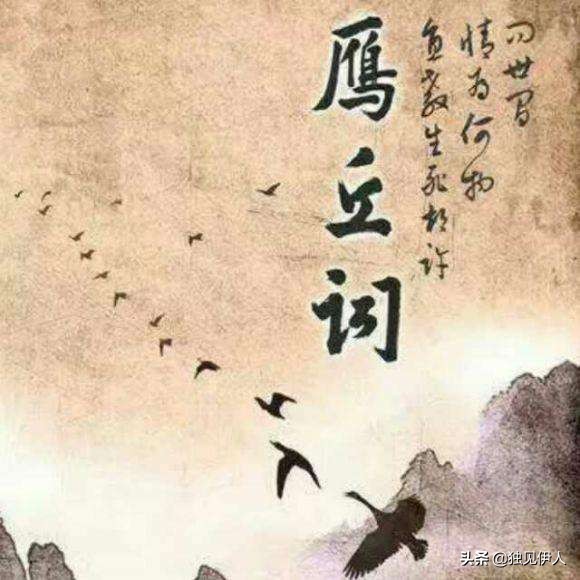 问世间
情为何物
直教生死相许
鴈丘词
头条 @独见伊人